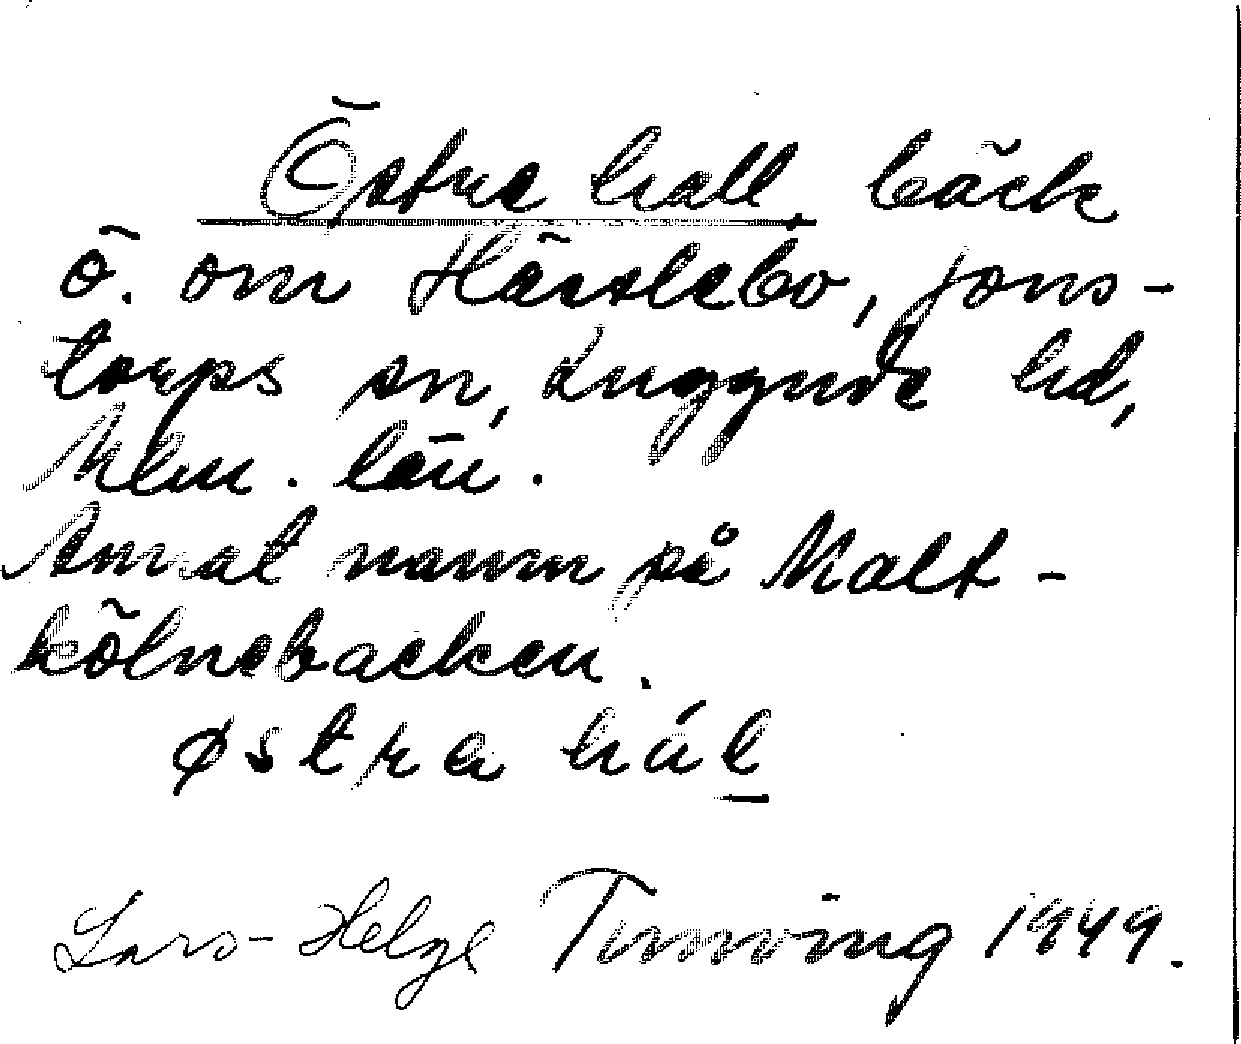 Östra hall, bäck
ö. om Hässlebo, Jons-
torps sn, Luggude hd,
Mlm. län.
Annat namn på Malt-
kölnebacken.
østra hál
Lars-Helge Tunving 1949.